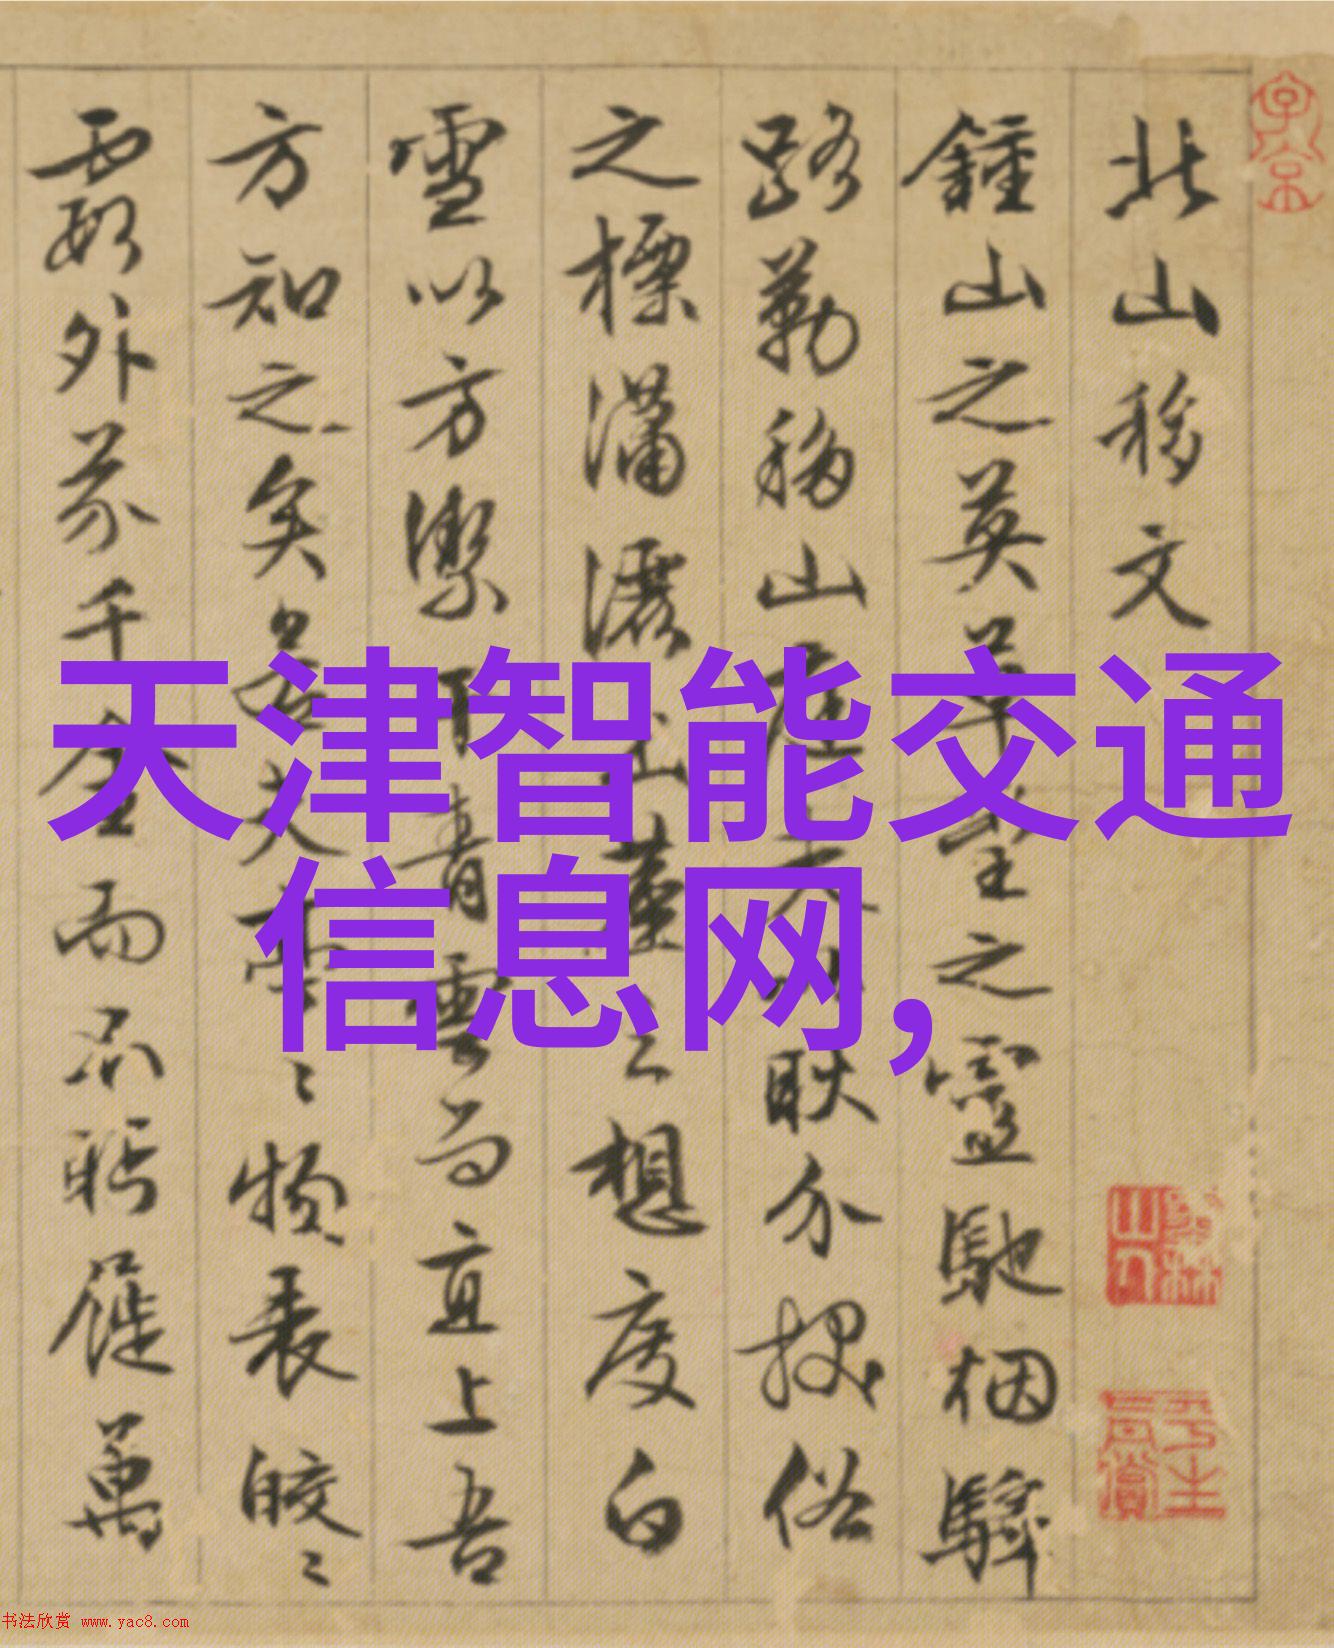 子京
北山移文
鍾山之英草堂之靈馳烟驛
路勒移山庭夫以耿介拔俗
之標瀟灑出塵之想度白
雪以方潔干青雲而直上吾
方知之矣若夫亭〻物表皎〻
霞外芥千金而不眄屣萬
墨林山人
平生真賞
天津智能交通
信息网,
书法欣赏 www.yac8.com